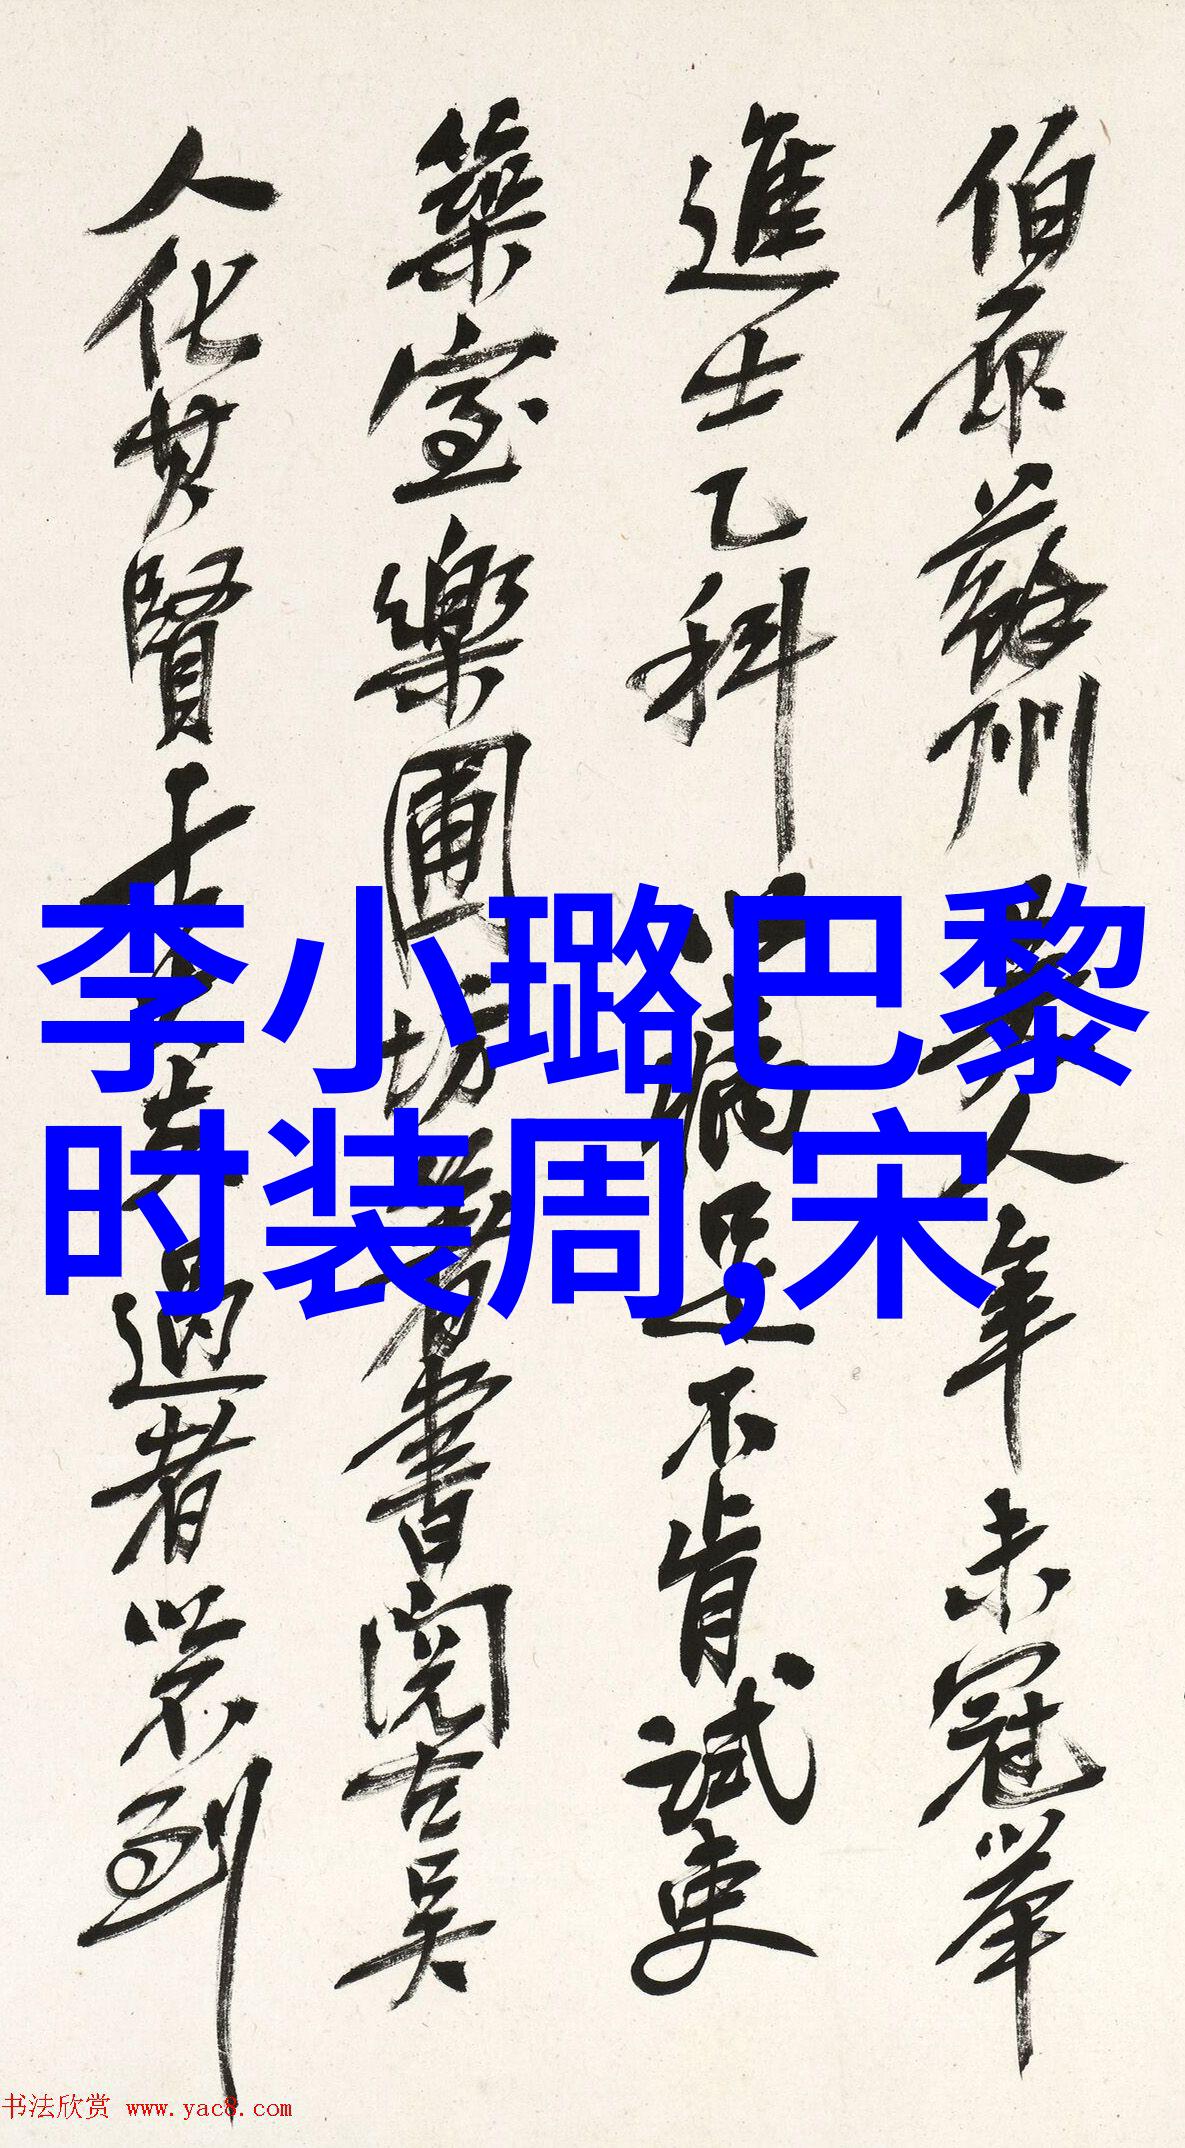 伯原蘇州吳人年未冠舉
進士乙科以病足不肯試吏
築室樂圃坊著書閱古吳
人化其賢士大夫過者必
到
李小璐巴黎
时装周,宋
书法欣赏 www.yac8.com